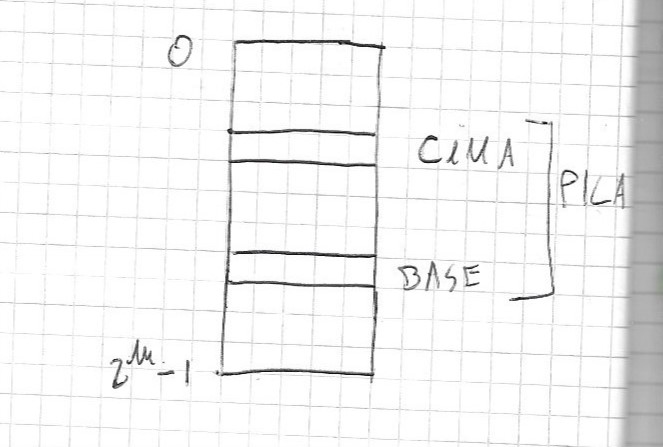 0
CIMA
PILA
BASE
2^m-1